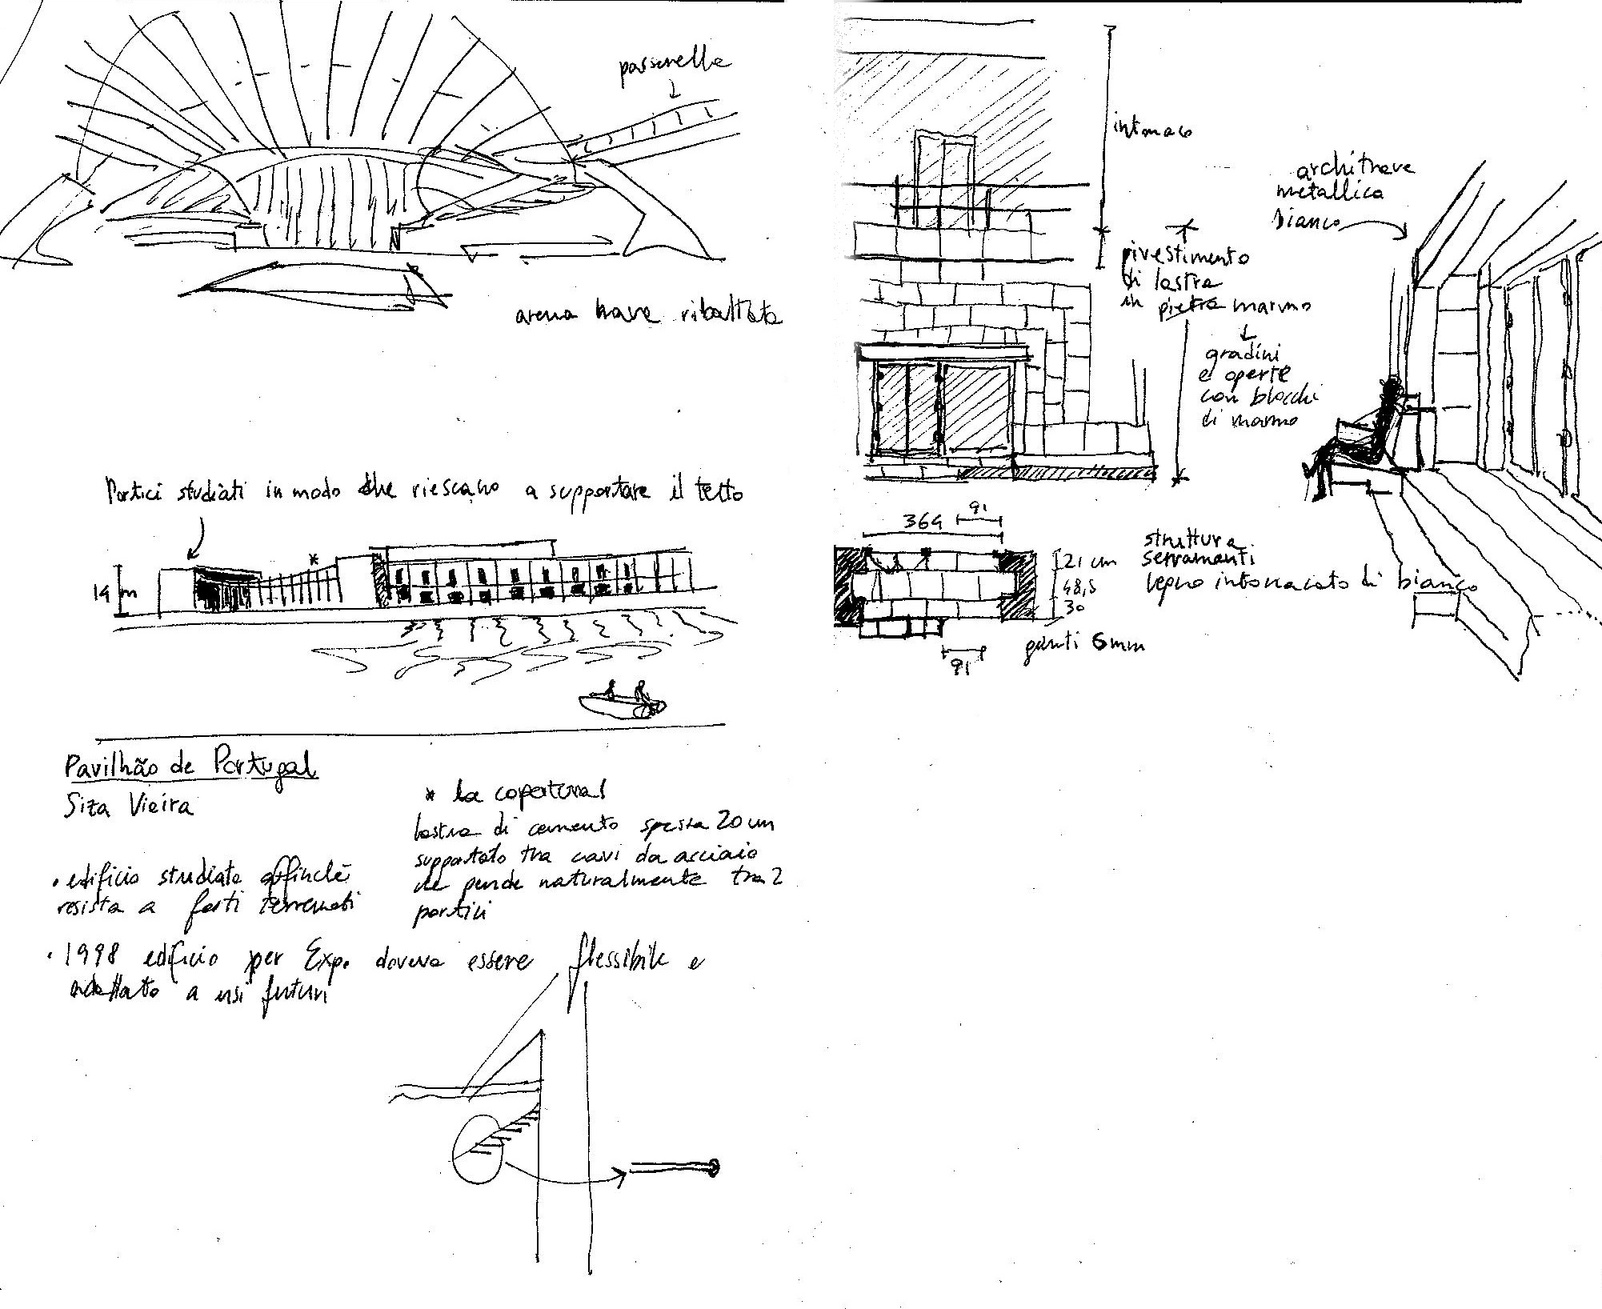 passerella
arena nave ribaltata
Portici studiati in modo che riescano a supportare il tetto
*
14 m
Pavilhão de Portugal
Siza Vieira
• edificio studiato affinchè
resista a forti terremoti
* la copertura!
lastra di cemento spessa 20 cm
supportato tra cavi da acciaio
che pende naturalmente tra 2
portici
• 1998 edificio per Expo doveva essere flessibile e
adattato a usi futuri
intonaco
rivestimento
di lastra
in pietra marmo
gradini
e operte
con blocchi
di marmo
architrave
metallica
bianco
364
91
21 cm
48,5
30
91
giunti 6mm
struttura
serramenti
legno intonacato di bianco